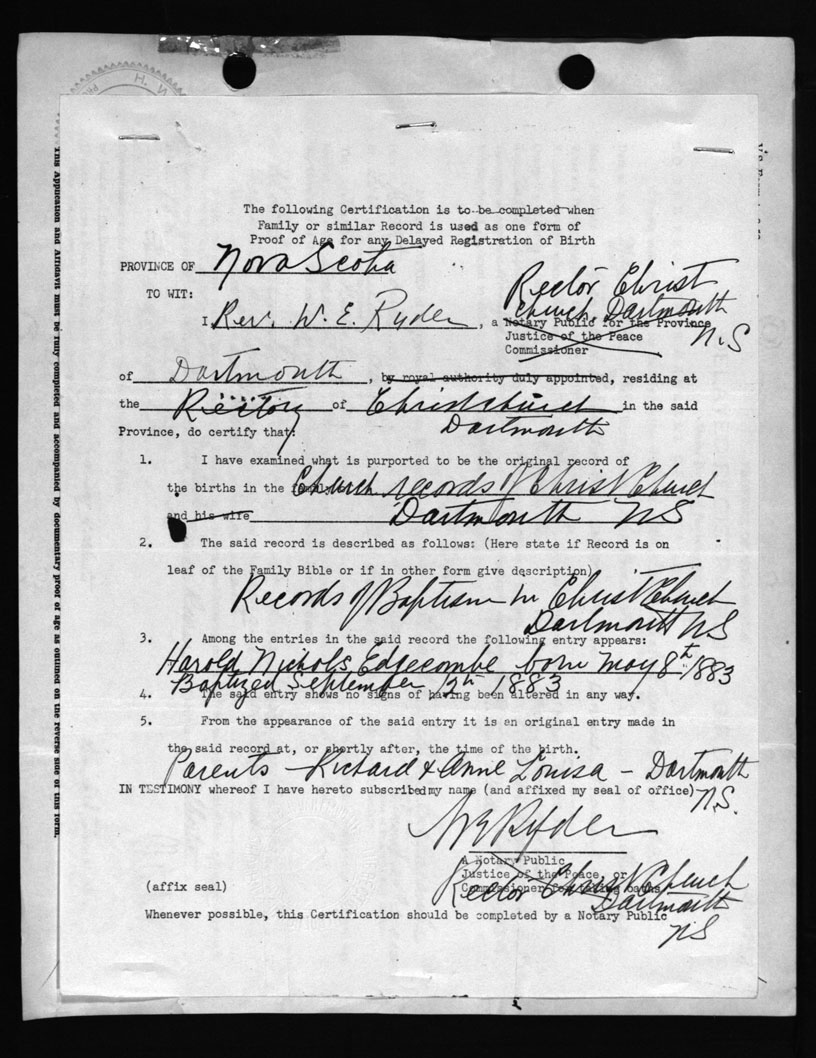 The following Certification is to be completed when
Family or similar Record is used as one form of
Proof of Age for any Delayed Registration of Birth
PROVINCE OF Nova Scotia
TO WIT:
Rector Christ
Church, Dartmouth
N.S
I, Rev. W. E. Ryder, a Notary Public for the Province
Justice of the Peace
Commissioner
of Dartmouth, by royal authority duly appointed, residing at
the Rectory of Christ Church in the said
Dartmouth
Province, do certify that:
1. I have examined what is purported to be the original record of
the births in the family Church records of Christ Church
and his wife Dartmouth NS
2. The said record is described as follows: (Here state if Record is on
leaf of the Family Bible or if in other form give description)
Records of Baptism in Christ Church
Dartmouth NS
3. Among the entries in the said record the following entry appears:
Harold Nichols Edgecombe born May 8th 1883
Baptized September 12th 1883
4. The said entry shows no signs of having been altered in any way.
5. From the appearance of the said entry it is an original entry made in
the said record at, or shortly after, the time of the birth.
Parents - Richard & Anne Louisa - Dartmouth
N.S.
IN TESTIMONY whereof I have hereto subscribed my name (and affixed my seal of office)
W E Ryder
A Notary Public
Justice of the Peace, or
Commissioner for taking oaths
Rector Christ Church
Dartmouth
NS
(affix seal)
Whenever possible, this Certification should be completed by a Notary Public
This Application and Affidavit must be fully completed and accompanied by documentary proof of age as outlined on the reverse side of this form.